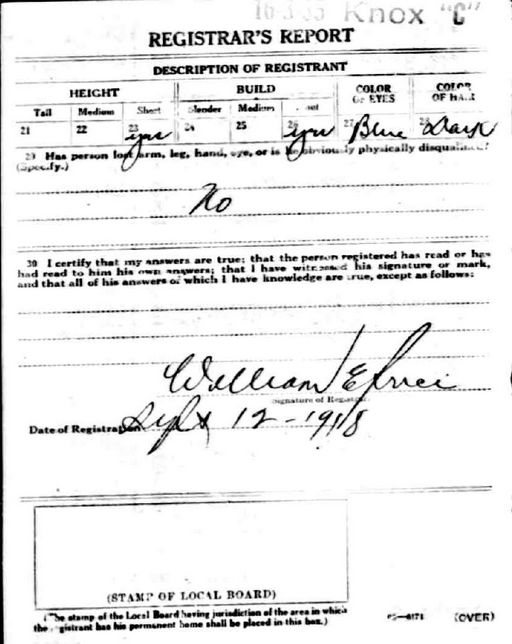 16-3-35 Knox "C"
REGISTRAR'S REPORT
DESCRIPTION OF REGISTRANT
HEIGHT BUILD COLOR OF EYES COLOR OF HAIR
Tall Medium Short Slender Medium Stout
21 22 23 yes 24 25 26 yes 27 Blue 28 Dark
29 Has person lost arm, leg, hand, eye, or is he obviously physically disqualified?
(Specify.)
No
30 I certify that my answers are true; that the person registered has read or has
had read to him his own answers; that I have witnessed his signature or mark,
and that all of his answers of which I have knowledge are true, except as follows:
William E
Signature of Registrar
Date of Registration Sept 12-1918
(STAMP OF LOCAL BOARD)
(The stamp of the Local Board having jurisdiction of the area in which
the registrant has his permanent home shall be placed in this box.)
03—6171 (OVER)